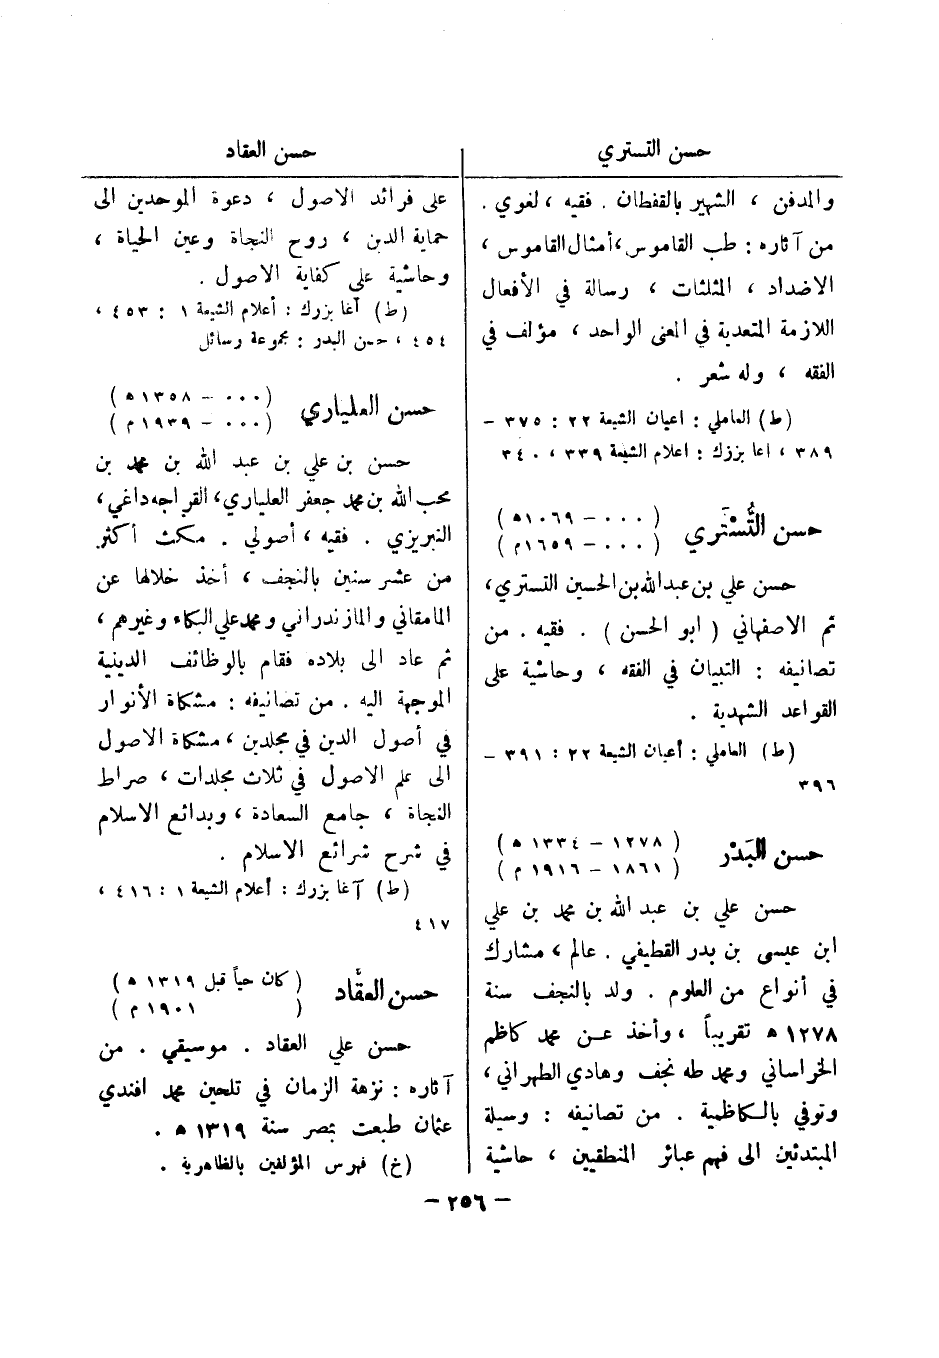 حسن التستري
والمدفن ، الشهير بالقفطان . فقيه ، لغوي .
من آثاره : طب القاموس ، أمثال القاموس ،
الاضداد ، المثلثات ، رسالة في الأفعال
اللازمة المتعدية في المعنى الواحد ، مؤلف في
الفقه ، وله شعر .
(ط) العاملي : اعيان الشيعة ٢٢ : ٣٧٥ –
٣٨٩ ، اغا بزرك : اعلام الشيعة ٣٣٩ ، ٣٤٠
حسن التُّسْتَري
( ٠٠٠ – ١٠٦٩ ه )
( ٠٠٠ – ١٦٥٩ م )
حسن علي بن عبدالله بن الحسين التستري ،
ثم الاصفهاني ( ابو الحسن ) . فقيه . من
تصانيفه : التبيان في الفقه ، وحاشية على
القواعد الشهدية .
(ط) العاملي : أعيان الشيعة ٢٢ : ٣٩١ –
٣٩٦
حسن البَدْر
( ١٢٧٨ – ١٣٣٤ ه )
( ١٨٦١ – ١٩١٦ م )
حسن علي بن عبد الله بن محمد بن علي
ابن عيسى بن بدر القطيفي . عالم ، مشارك
في أنواع من العلوم . ولد بالنجف سنة
١٢٧٨ ه تقريباً ، وأخذ عن محمد كاظم
الخراساني ومحمد طه نجف وهادي الطهراني ،
وتوفي بالكاظمية . من تصانيفه : وسيلة
المبتدئين الى فهم عبائر المنطقيين ، حاشية
حسن العقاد
على فرائد الاصول ، دعوة الموحدين الى
حماية الدين ، روح النجاة وعين الحياة ،
وحاشية على كفاية الاصول .
(ط) آغا بزرك : أعلام الشيعة ١ : ٤٥٣ ،
٤٥٤ ، حسن البدر : مجموعة رسائل
حسن العلياري
( ٠٠٠ – ١٣٥٨ ه )
( ٠٠٠ – ١٩٣٩ م )
حسن بن علي بن عبد الله بن محمد بن
محب الله بن محمد جعفر العلياري ، القراجه داغي ،
التبريزي . فقيه ، أصولي . مكث أكثر
من عشر سنين بالنجف ، أخذ خلالها عن
المامقاني والمازندراني ومحمد علي البكاء وغيرهم ،
ثم عاد الى بلاده فقام بالوظائف الدينية
الموجهة اليه . من تصانيفه : مشكاة الأنوار
في أصول الدين في مجلدين ، مشكاة الاصول
الى علم الاصول في ثلاث مجلدات ، صراط
النجاة ، جامع السعادة ، وبدائع الاسلام
في شرح شرائع الاسلام .
(ط) آغا بزرك : أعلام الشيعة ١ : ٤١٦ ،
٤١٧
حسن العقَّاد
( كان حياً قبل ١٣١٩ ه )
( ١٩٠١ م )
حسن علي العقاد . موسيقي . من
آثاره : نزهة الزمان في تلحين محمد افندي
عثمان طبعت بمصر سنة ١٣١٩ ه .
(خ) فهرس المؤلفين بالظاهرية .
– ٢٥٦ –